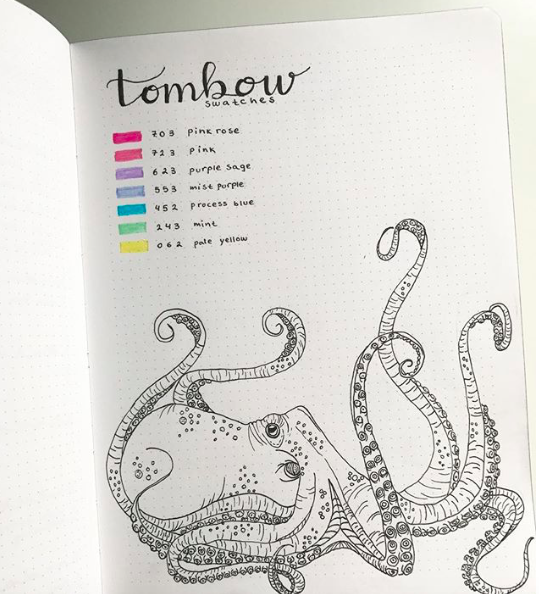 tombow
swatches
703 pink rose
723 pink
623 purple sage
553 mist purple
452 process blue
243 mint
062 pale yellow